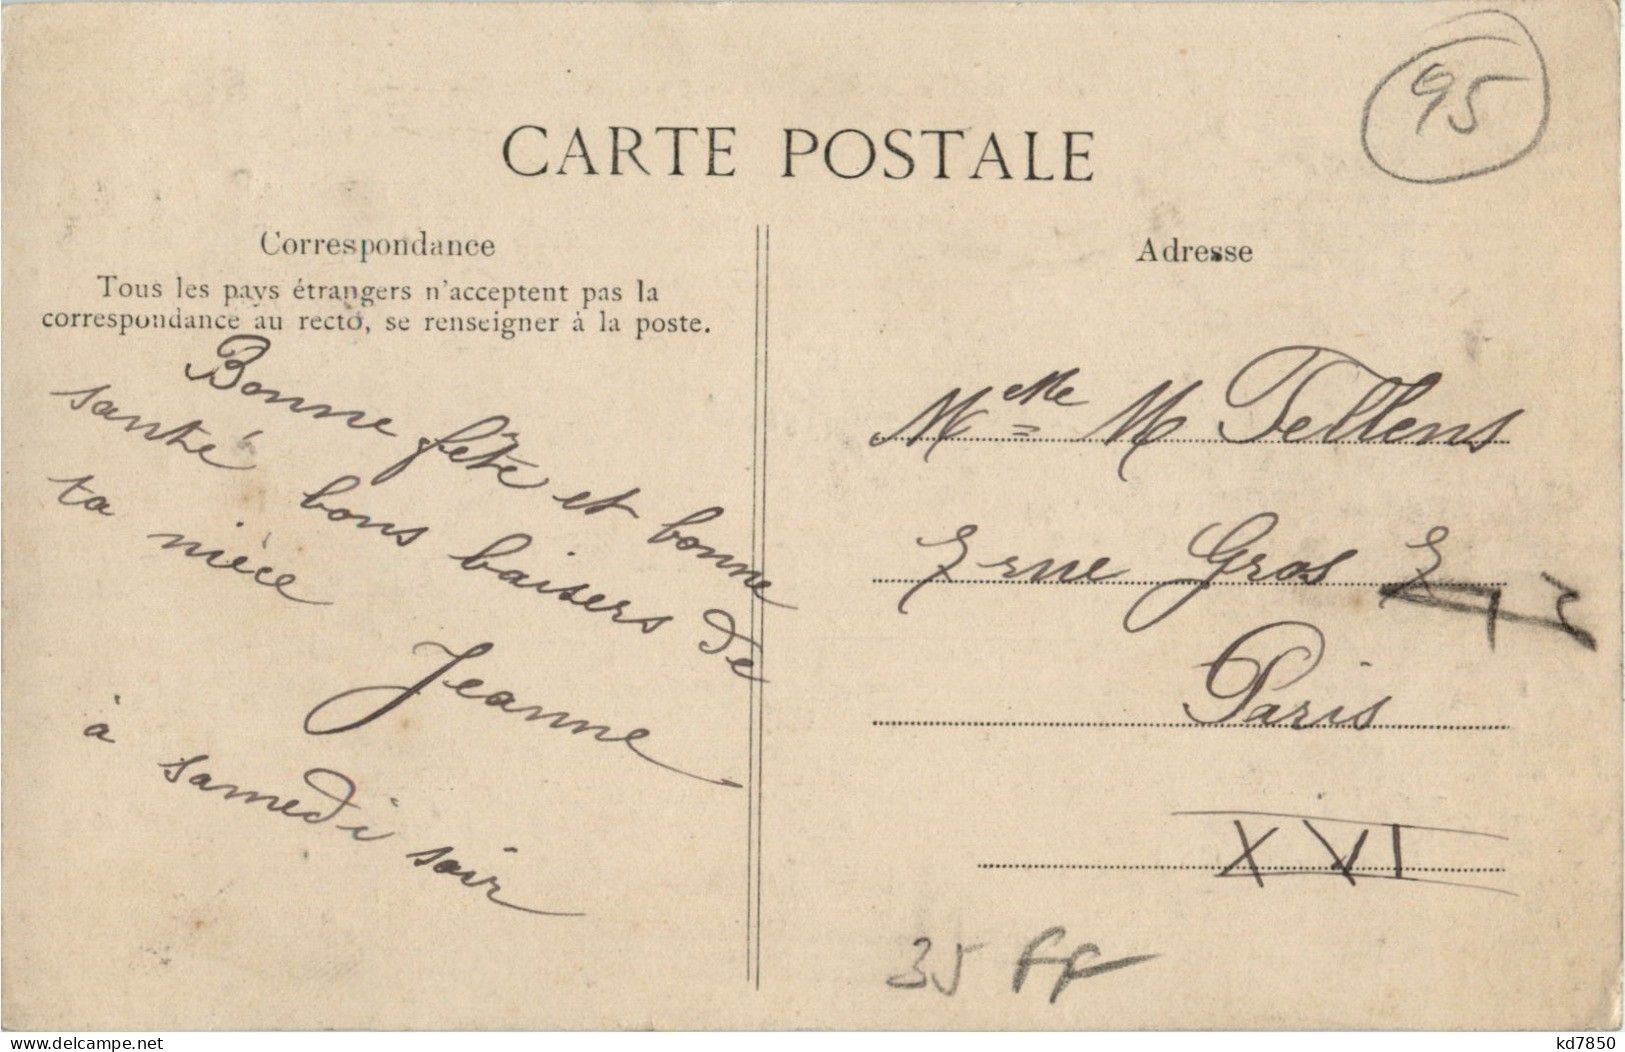 95
CARTE POSTALE
Correspondance
Tous les pays étrangers n'acceptent pas la
correspondance au recto, se renseigner à la poste.
Bonne fête et bonne
santé bons baisers de
ta nièce
Jeanne
à samedi soir
Adresse
Melle M Tellens
rue Gros
Paris
XVI
35 ff
kd7850